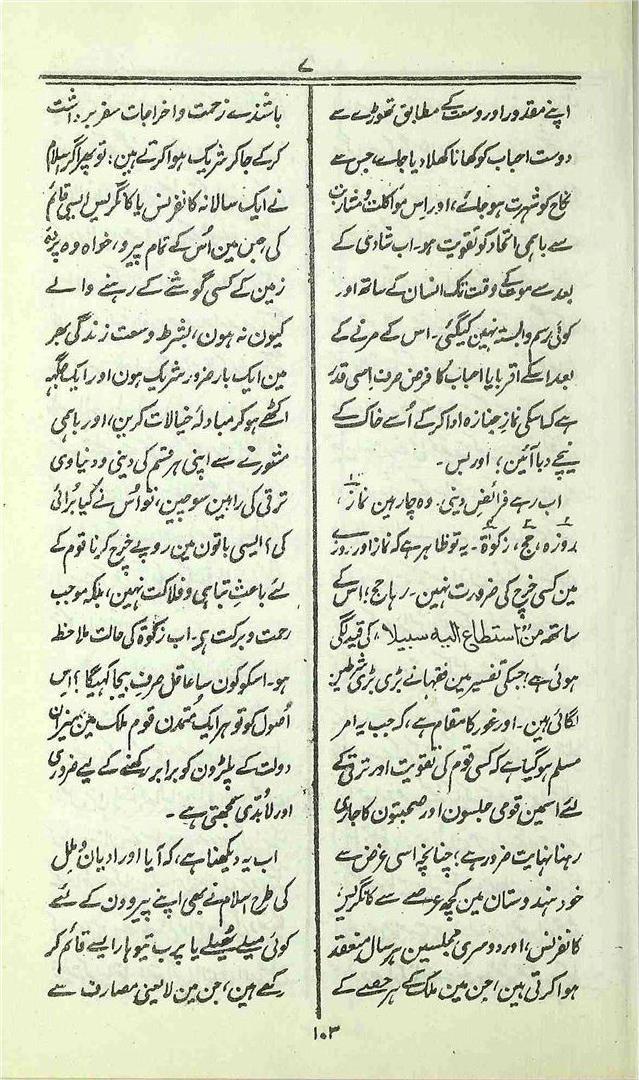 ۷
اپنے مقدور اور وسعت کے مطابق تھوڑے سے
دوست احباب کو کھانا کھلا دیا جاے، جس سے
نکاح کو شہرت ہو جائے، اور اس مواکلت و مشاربت
سے باہمی اتحاد کو تقویت ہو۔ اب شادی کے
بعد سے موت کے وقت تک انسان کے ساتھ اور
کوئی رسم وابستہ نہین کیگئی۔ اس کے مرنے کے
بعد اسکے اقربا یا احباب کا فرض صرف اِسی قدر
ہے کہ اسکی نماز جنازہ ادا کر کے اُسے خاک کے
نیچے دبا آئین؛ اور بس۔
اب رہے فرائض دینی۔ وہ چار ہین نماز،
روزہ، حج، زکوٰۃ۔ یہ تو ظاہر ہے کہ نماز اور روزے
مین کسی خرچ کی ضرورت نہین۔ رہا حج؛ اس کے
ساتھ "من استطاع الیہ سبیلا"، کی قید لگی
ہوئی ہے؛ جسکی تفسیر مین فقہا نے بڑی بڑی شرطین
لگائی ہین۔ اور غور کا مقام ہے، کہ جب یہ امر
مسلم ہو گیا ہے کہ کسی قوم کی تقویت اور ترقی کے
لئے اسمین قومی جلسون اور صحبتون کا جاری
رہنا نہایت ضرور ہے؛ چنانچہ اسی غرض سے
خود ہندوستان مین کچھ عرصے سے کانگریس،
کانفرنس، اور دوسری مجلسین ہر سال منعقد
ہوا کرتی ہین، جن مین ملک کے ہر حصے کے
باشندے زحمت و اخراجات سفر برداشت
کر کے جا کر شریک ہوا کرتے ہین؛ تو پھر اگر اسلام
نے ایک سالانہ کانفرنس یا کانگریس ایسی قائم
کی، جس مین اُس کے تمام پیرو، خواہ وہ پردۂ
زمین کے کسی گوشے کے رہنے والے
کیون نہ ہون، بشرط وسعت زندگی بھر
مین ایک بار ضرور شریک ہون اور ایک جگہہ
اکٹھے ہو کر مبادلۂ خیالات کرین، اور باہمی
مشورے سے اپنی ہر قسم کی دینی و دنیاوی
ترقی کی راہین سوچین، تو اُس نے کیا بُرائی
کی؟ ایسی باتون مین روپے خرچ کرنا قوم کے
لئے باعثِ تباہی و فلاکت نہین، بلکہ موجب
رحمت و برکت ہے۔ اب زکوٰۃ کی حالت ملاحظہ
ہو۔ اسکو کون سا عاقل صرفِ بیجا کہیگا؟ اِس
اُصول کو تو ہر ایک متمدن قوم ملک مین میزان
دولت کے پلڑون کو برابر رکھنے کے لیے ضروری
اور لابُدّی سمجھتی ہے۔
اب یہ دیکھنا ہے، کہ آیا اور ادیان و مِلل
کی طرح اسلام نے بھی اپنے پیروون کے لئے
کوئی میلے ٹھیلے یا پرب تیوہار ایسے قائم کر
رکھے ہین، جن مین لایعنی مصارف سے
۱۰۳